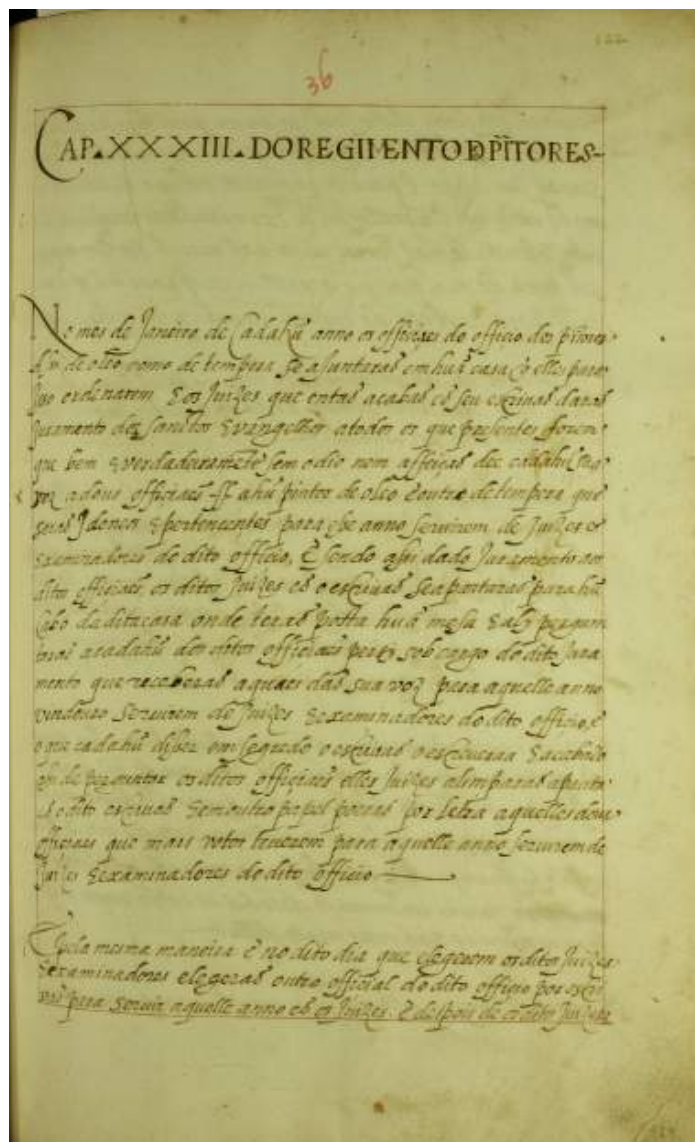 122
36
CAP. XXXIII. DO REGIMENTO D PĨTORES
No mes de Janeiro de Cadahũ anno os officiaes do officio dos pĩtores
de oleo como de tempera se ajuntarão em huã casa q̃ elles pera
isso ordenarem & os Juizes que então acabão cõ seu escrivão darão
Juramento dos Sanctos Evangelhos a todos os que presentes forem
que bem & verdadeiramẽte sem odio nem affeição dee cadahũ sua
voz a dous officiaes .ſ. a hũ pintor de oleo & outro de tempera que
sejão Idoneos & pertencentes para esse anno servirem de Juizes &
Examinadores do dito officio. E sendo assi dado Juramento aos
ditos officiaes os ditos Juizes cõ o escrivão se apartarão para hũ
Cabo da dita casa onde terão posta huã mesa & aly pergun
tarão a cadahũ dos ditos officiaes perssy sob cargo do dito Jura
mento que receberão a quaes dão sua voz pera aquelle anno
vindouro servirem de Juizes & examinadores do dito officio, &
o que cadahũ disser em segredo o escrivão o escrevera & acabado
assi de perguntar os ditos officiaes elles Juizes alimparão a pauta
cõ o dito escrivão & em outro papel porão por letra aquelles dous
officiaes que mais votos tiverem para aquelle anno servirem de
Juizes & examinadores do dito officio
E pela mesma maneira & no dito dia que elegerem os ditos Juizes
& examinadores elegerão outro official do dito officio por escri
vão pera servir aquelle anno cõ os Juizes. E despois de os ditos Juizes